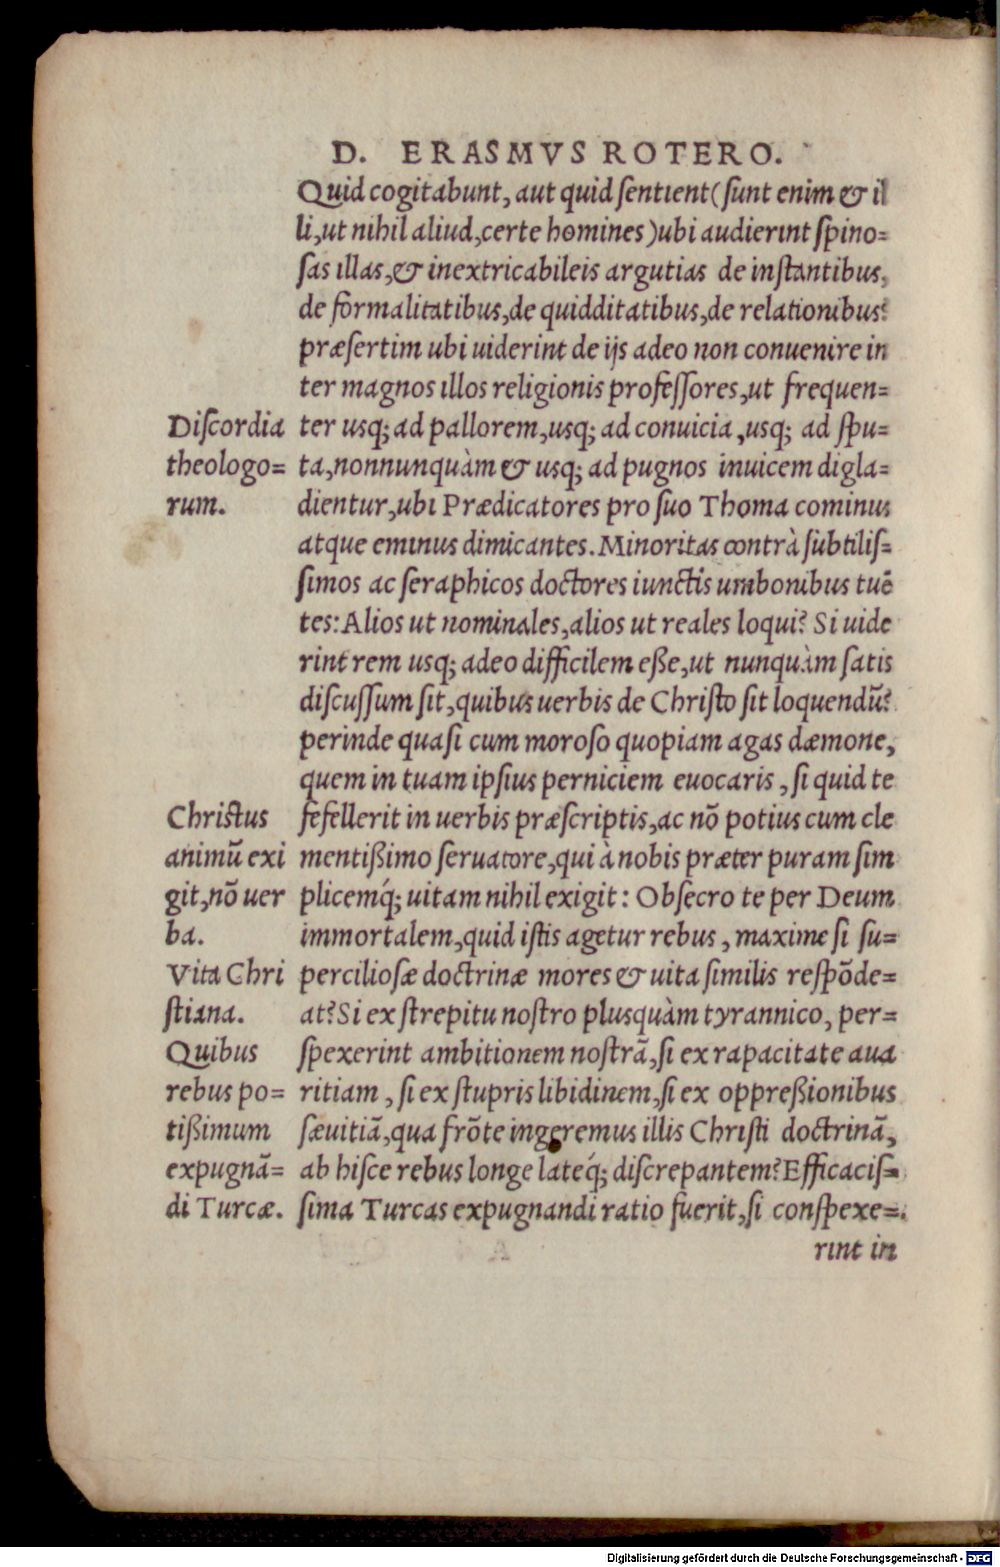 D. ERASMVS ROTERO.
Quid cogitabunt, aut quid ſentient (ſunt enim & il
li, ut nihil aliud, certe homines) ubi audierint ſpino=
ſas illas, & inextricabileis argutias de inſtantibus,
de formalitatibus, de quidditatibus, de relationibus?
præſertim ubi uiderint de ijs adeo non conuenire in
ter magnos illos religionis profeſſores, ut frequen=
ter usq; ad pallorem, usq; ad conuicia, usq; ad ſpu=
ta, nonnunquàm & usq; ad pugnos inuicem digla=
dientur, ubi Prædicatores pro ſuo Thoma cominus
atque eminus dimicantes. Minoritas contrà ſubtiliſ=
ſimos ac ſeraphicos doctores iunctis umbonibus tuẽ
tes: Alios ut nominales, alios ut reales loqui? Si uide
rint rem usq; adeo difficilem eße, ut nunquàm ſatis
diſcuſſum ſit, quibus uerbis de Chriſto ſit loquendũ?
perinde quaſi cum moroſo quopiam agas dæmone,
quem in tuam ipſius perniciem euocaris, ſi quid te
fefellerit in uerbis præſcriptis, ac nõ potius cum cle
mentißimo ſeruatore, qui à nobis præter puram ſim
plicemq́; uitam nihil exigit: Obſecro te per Deum
immortalem, quid iſtis agetur rebus, maxime ſi ſu=
percilioſæ doctrinæ mores & uita ſimilis reſpõde=
at? Si ex ſtrepitu noſtro pluſquàm tyrannico, per=
ſpexerint ambitionem noſtrã, ſi ex rapacitate aua
ritiam, ſi ex ſtupris libidinem, ſi ex oppreßionibus
ſæuitiã, qua frõte ingeremus illis Chriſti doctrinã,
ab hiſce rebus longe lateq́; diſcrepantem? Efficaciſ=
ſima Turcas expugnandi ratio fuerit, ſi conſpexe=
rint in
Diſcordia
theologo=
rum.
Chriſtus
animũ exi
git, nõ uer
ba.
Vita Chri
ſtiana.
Quibus
rebus po=
tißimum
expugnã=
di Turcæ.
Digitalisierung gefördert durch die Deutsche Forschungsgemeinschaft - DFG